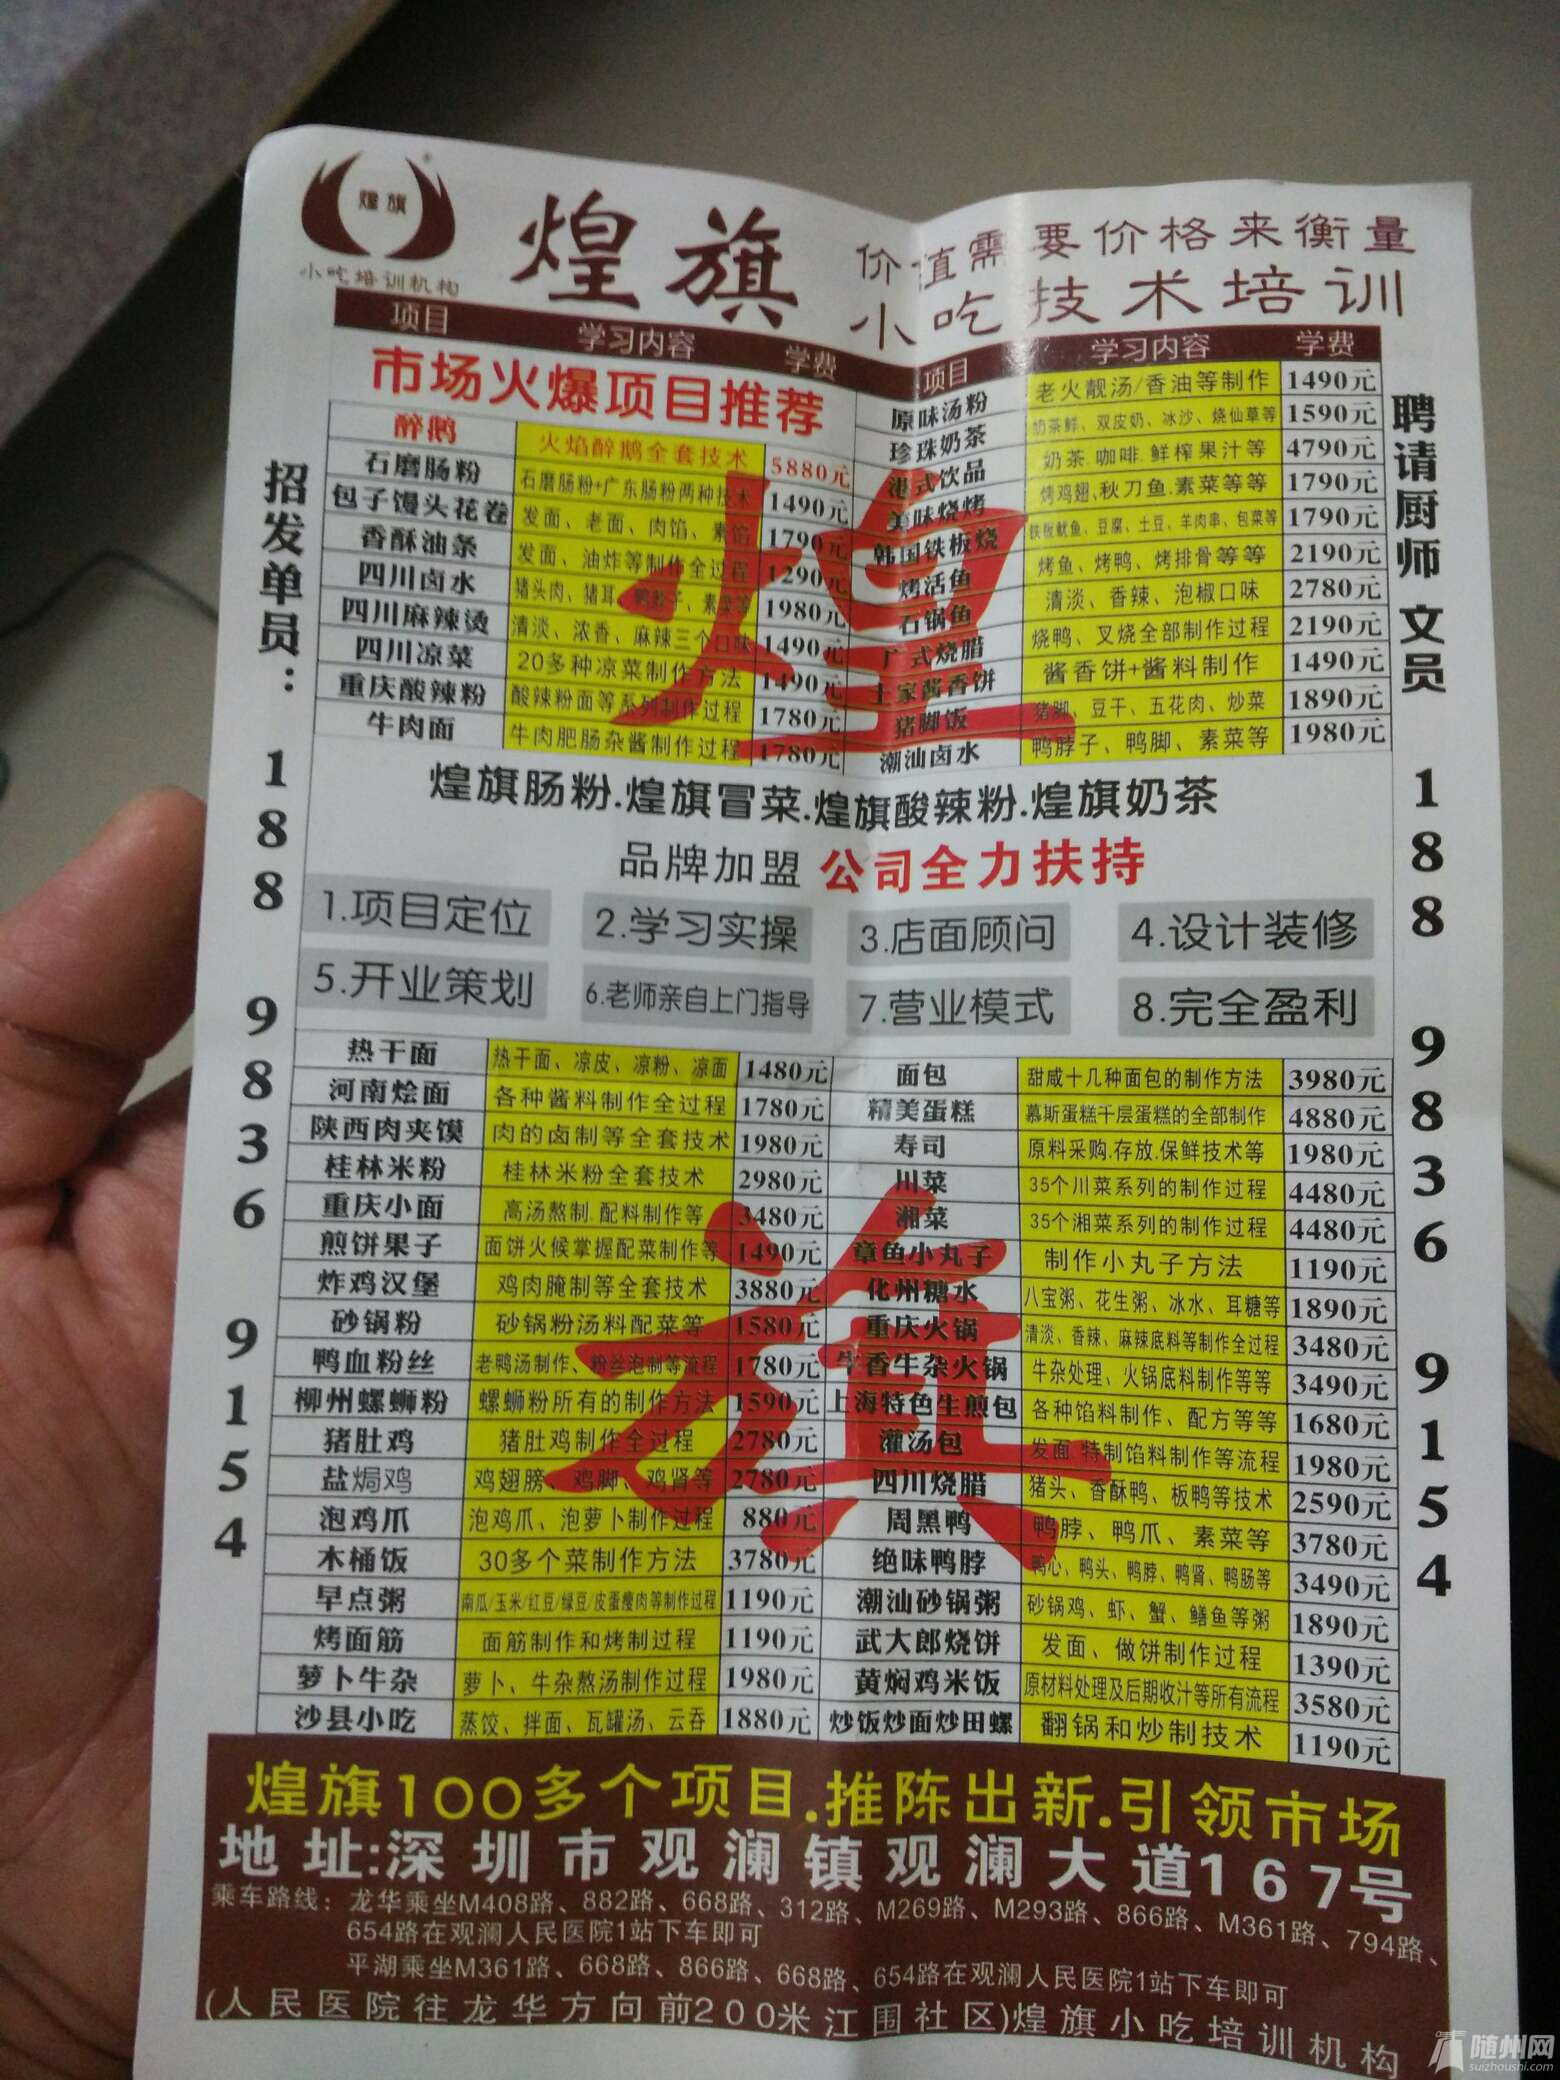 煌旗
小吃培训机构
煌旗 价值需要价格来衡量
小吃技术培训
项目 学习内容 学费 项目 学习内容 学费
市场火爆项目推荐
醉鹅 火焰醉鹅全套技术 5880元
石磨肠粉 石磨肠粉+广东肠粉两种技术 1490元
包子馒头花卷 发面、老面、肉馅、素馅 1790元
香酥油条 发面、油炸等制作全过程 1290元
四川卤水 猪头肉、猪耳、鸭脖子、素菜等 1980元
四川麻辣烫 清淡、浓香、麻辣三个口味 1490元
四川凉菜 20多种凉菜制作方法 1490元
重庆酸辣粉 酸辣粉面等系列制作过程 1780元
牛肉面 牛肉肥肠杂酱制作过程 1780元
原味汤粉 老火靓汤/香油等制作 1490元
珍珠奶茶 奶茶鲜、双皮奶、冰沙、烧仙草等 1590元
港式饮品 奶茶.咖啡.鲜榨果汁等 4790元
美味烧烤 烤鸡翅、秋刀鱼.素菜等等 1790元
韩国铁板烧 铁板鱿鱼、豆腐、土豆、羊肉串、包菜等 1790元
烤活鱼 烤鱼、烤鸭、烤排骨等等 2190元
石锅鱼 清淡、香辣、泡椒口味 2780元
广式烧腊 烧鸭、叉烧全部制作过程 2190元
土家酱香饼 酱香饼+酱料制作 1490元
猪脚饭 猪脚、豆干、五花肉、炒菜 1890元
潮汕卤水 鸭脖子、鸭脚、素菜等 1980元
招发单员：188 9836 9154
聘请厨师 文员 188 9836 9154
煌旗
煌旗肠粉.煌旗冒菜.煌旗酸辣粉.煌旗奶茶
品牌加盟 公司全力扶持
1.项目定位 2.学习实操 3.店面顾问 4.设计装修
5.开业策划 6.老师亲自上门指导 7.营业模式 8.完全盈利
热干面 热干面、凉皮、凉粉、凉面 1480元
河南烩面 各种酱料制作全过程 1780元
陕西肉夹馍 肉的卤制等全套技术 1980元
桂林米粉 桂林米粉全套技术 2980元
重庆小面 高汤熬制.配料制作等 3480元
煎饼果子 面饼火候掌握配菜制作等 1490元
炸鸡汉堡 鸡肉腌制等全套技术 3880元
砂锅粉 砂锅粉汤料配菜等 1580元
鸭血粉丝 老鸭汤制作、粉丝泡制等流程 1780元
柳州螺蛳粉 螺蛳粉所有的制作方法 1590元
猪肚鸡 猪肚鸡制作全过程 2780元
盐焗鸡 鸡翅膀、鸡脚、鸡肾等 2780元
泡鸡爪 泡鸡爪、泡萝卜制作过程 880元
木桶饭 30多个菜制作方法 3780元
早点粥 南瓜/玉米/红豆/绿豆/皮蛋瘦肉等制作过程 1190元
烤面筋 面筋制作和烤制过程 1190元
萝卜牛杂 萝卜、牛杂熬汤制作过程 1980元
沙县小吃 蒸饺、拌面、瓦罐汤、云吞 1880元
面包 甜咸十几种面包的制作方法 3980元
精美蛋糕 慕斯蛋糕千层蛋糕的全部制作 4880元
寿司 原料采购.存放.保鲜技术等 1980元
川菜 35个川菜系列的制作过程 4480元
湘菜 35个湘菜系列的制作过程 4480元
章鱼小丸子 制作小丸子方法 1190元
化州糖水 八宝粥、花生粥、冰水、耳糖等 1890元
重庆火锅 清淡、香辣、麻辣底料等制作全过程 3480元
牛香牛杂火锅 牛杂处理、火锅底料制作等等 3490元
上海特色生煎包 各种馅料制作、配方等等 1680元
灌汤包 发面 特制馅料制作等流程 1980元
四川烧腊 猪头、香酥鸭、板鸭等技术 2590元
周黑鸭 鸭脖、鸭爪、素菜等 3780元
绝味鸭脖 鸭心、鸭头、鸭脖、鸭肾、鸭肠等 3490元
潮汕砂锅粥 砂锅鸡、虾、蟹、鳝鱼等粥 1890元
武大郎烧饼 发面、做饼制作过程 1390元
黄焖鸡米饭 原材料处理及后期收汁等所有流程 3580元
炒饭炒面炒田螺 翻锅和炒制技术 1190元
煌旗100多个项目.推陈出新.引领市场
地址:深圳市观澜镇观澜大道167号
乘车路线：龙华乘坐M408路、882路、668路、312路、M269路、M293路、866路、M361路、794路、
654路在观澜人民医院1站下车即可
平湖乘坐M361路、668路、866路、668路、654路在观澜人民医院1站下车即可
(人民医院往龙华方向前200米江围社区)煌旗小吃培训机构
随州网
suizhoushi.com